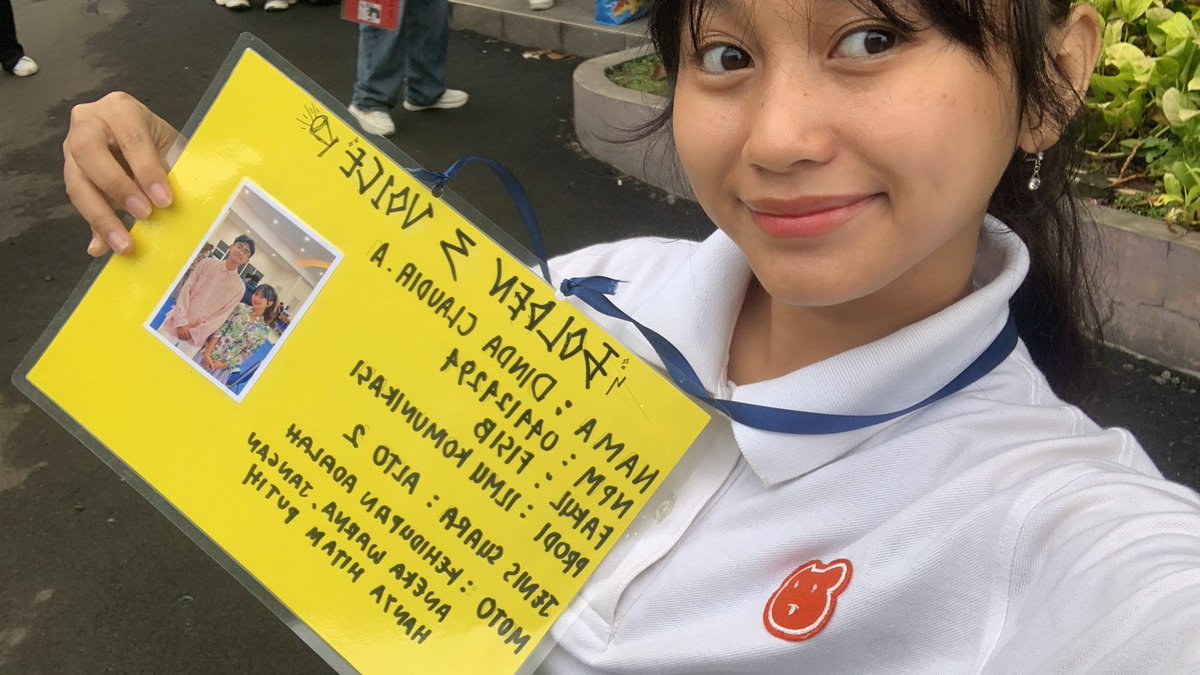 GOLDEN M VOICE
NAMA : DINDA CLAUDIA . A
NPM : 044124294
FAKUL : FISIB
PRODI : ILMU KOMUNIKASI
JENIS SUARA : ALTO 2
MOTO : KEHIDUPAN ADALAH
ANEKA WARNA. JANGAN
HANYA HITAM PUTIH